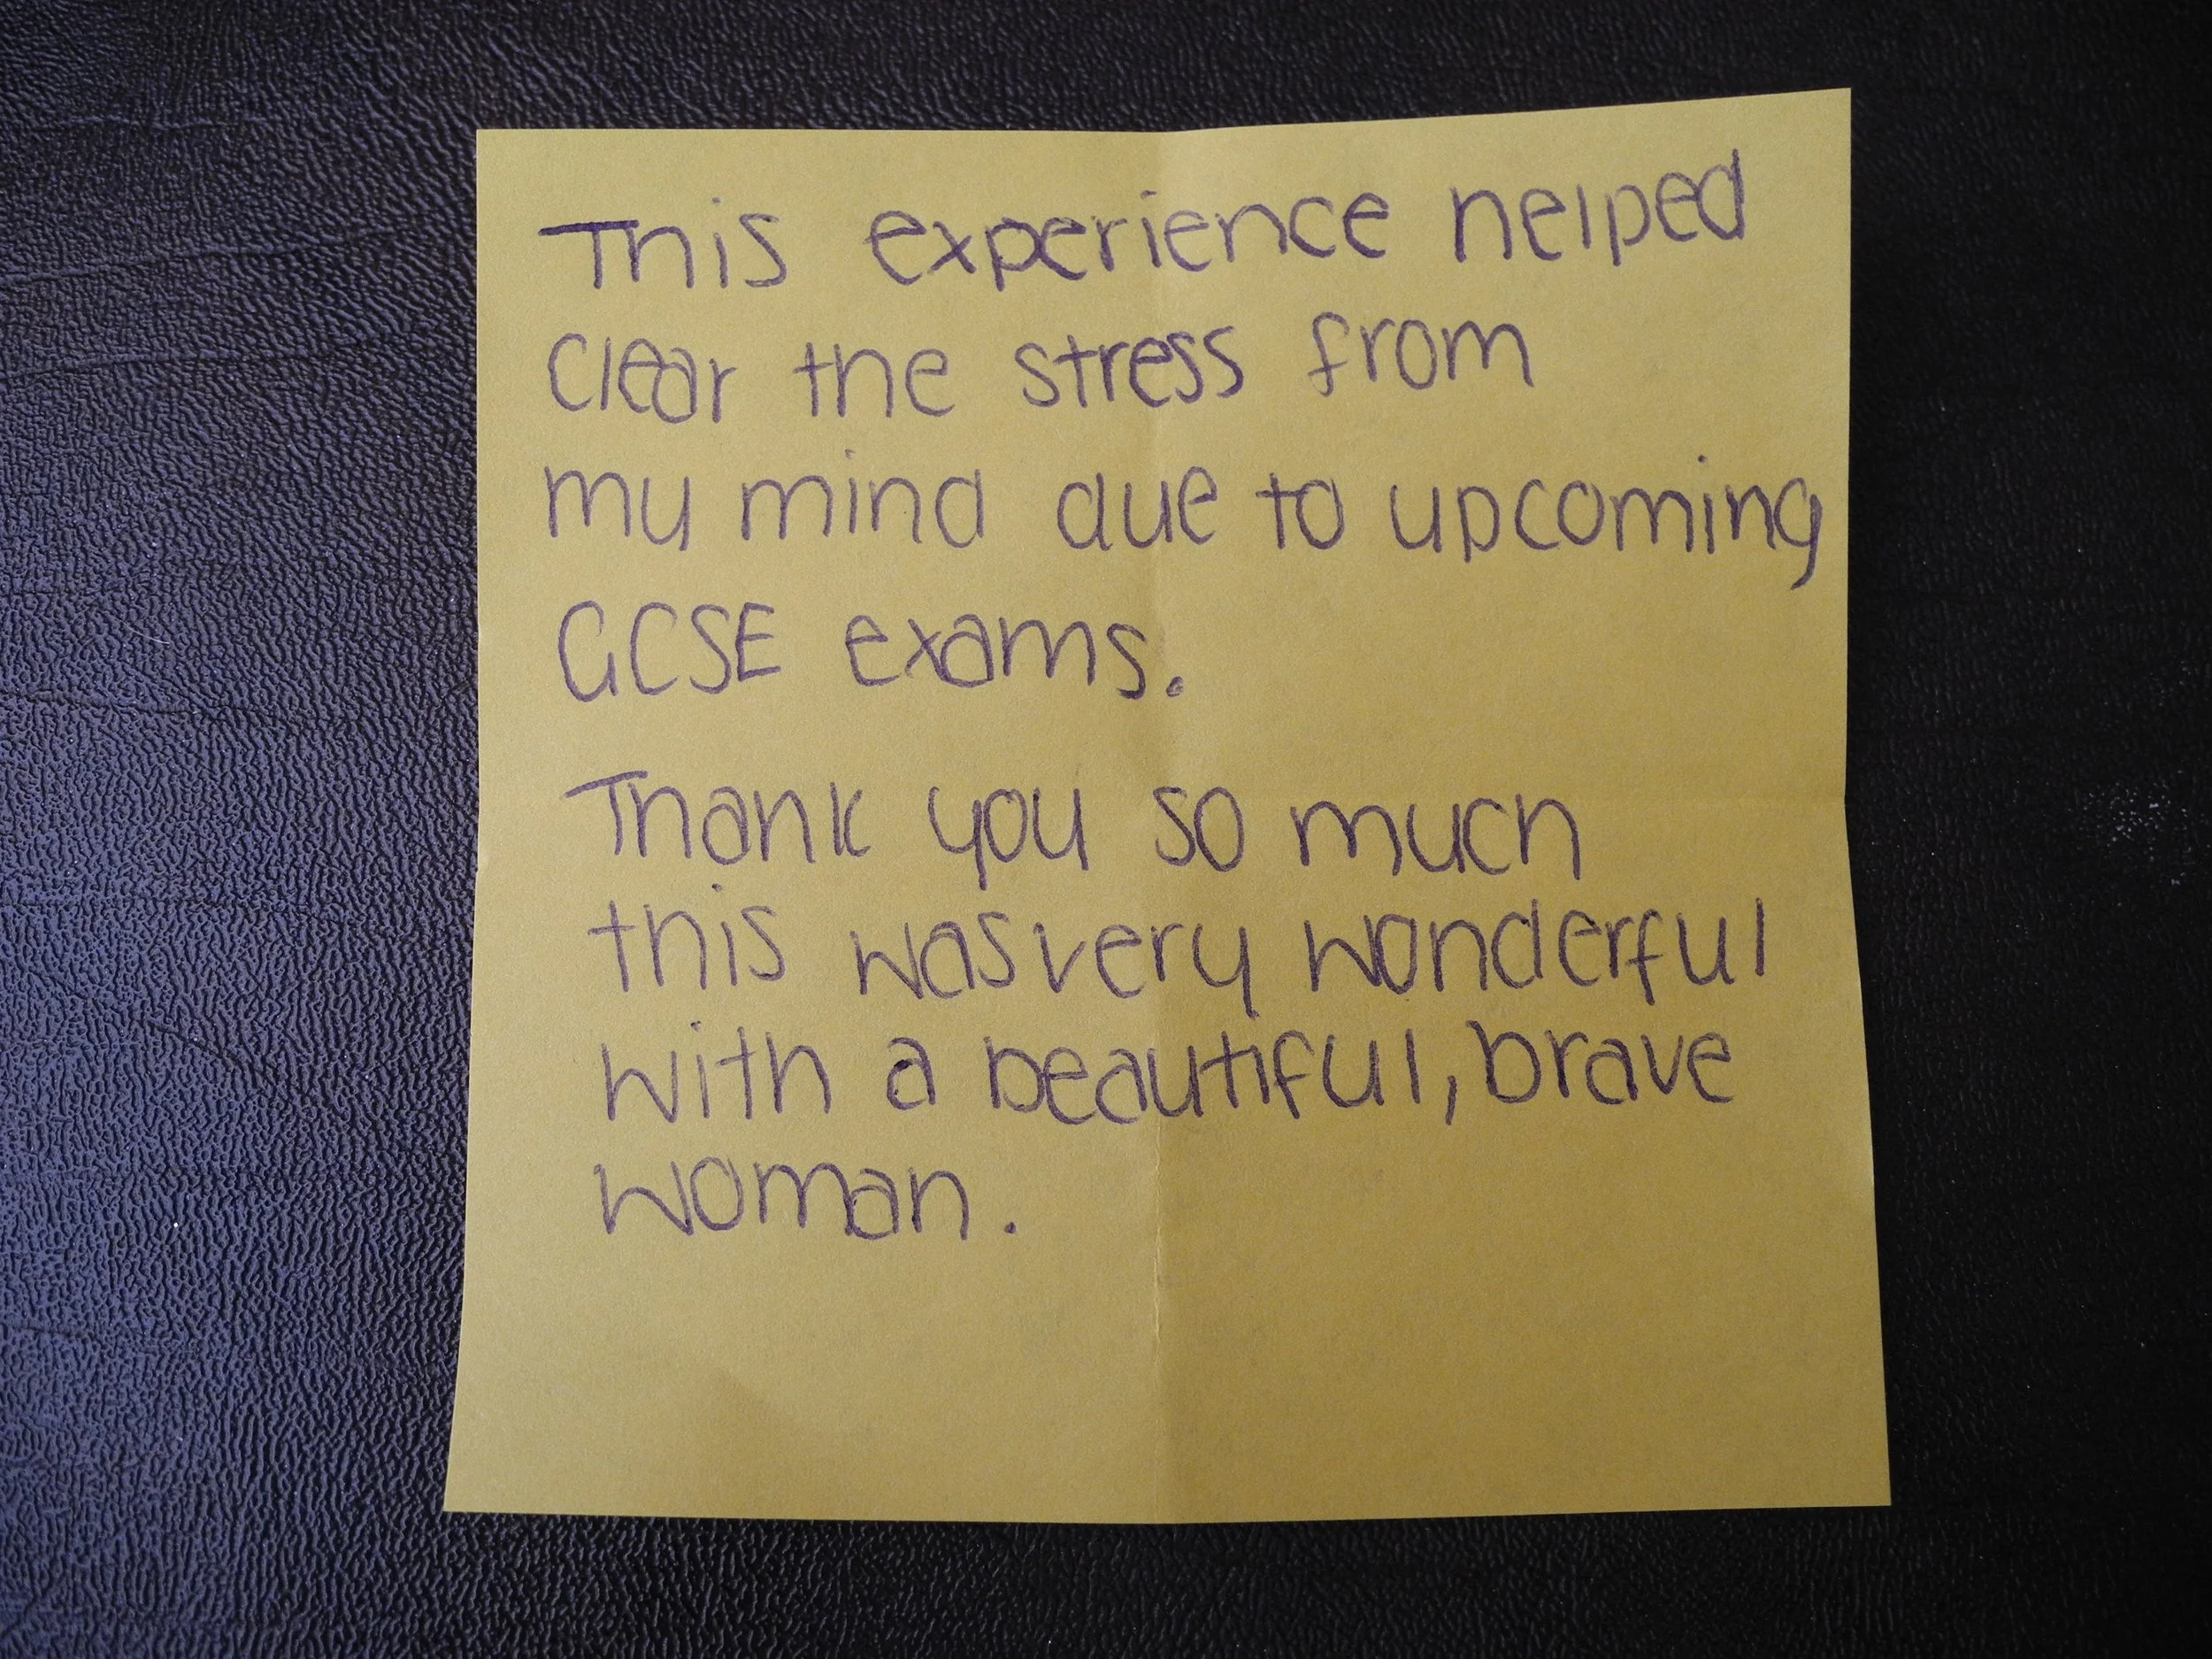 This experience helped
clear the stress from
my mind due to upcoming
GCSE exams.
Thank you so much
this was very wonderful
with a beautiful, brave
woman.